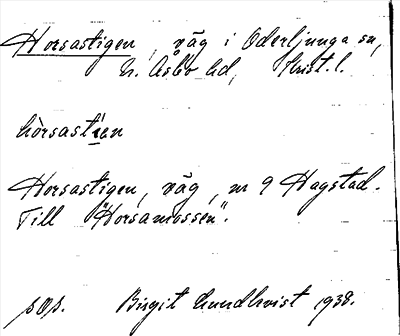 Horsastigen, väg i Oderljunga sn,
N. Åsbo hd, Krist. l.
hòrsastien
Horsastigen, väg, nr 9 Hagstad.
Till "Horsamossen".
Birgit Lundkvist 1938.